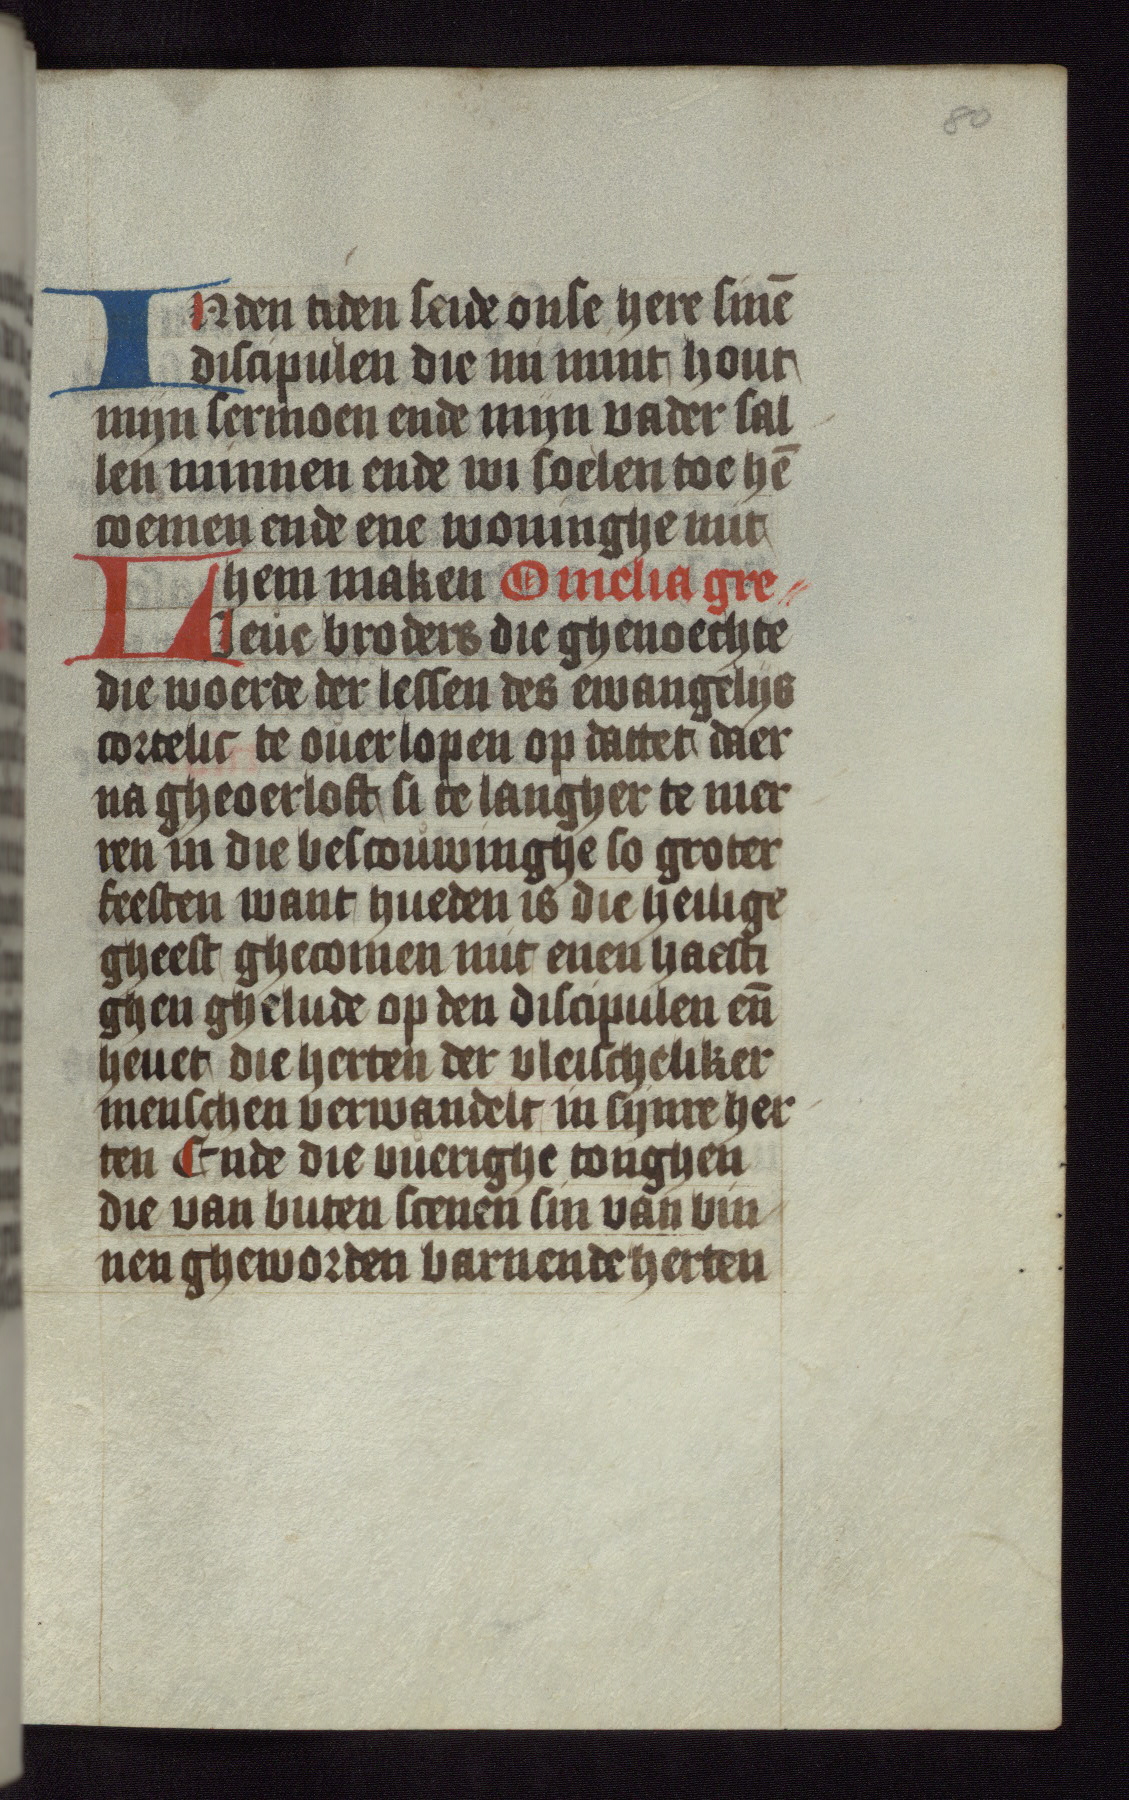 80
INden tiden seide onse here sinē
discipulen die mi mint hout
mijn sermoen ende mijn vader sal
len minnen ende wi soelen toe hē
coemen ende ene woninghe mit
hem maken Omelia gre
Lieue broders die ghenoechte
die woerde der lessen des ewangelijs
cortelic te ouerlopen op dattet daer
na gheoerloft si te langher te mer
ren in die bescouwinghe so groter
feesten want hueden is die heilige
gheest ghecomen mit enen haesti
ghen ghelude op den discipulen en̄
heuet die herten der vleischeliker
menschen verwandelt in sijnre her
ten Ende die vuerighe tonghen
die van buten scenen sin van bin
nen gheworden barnende herten